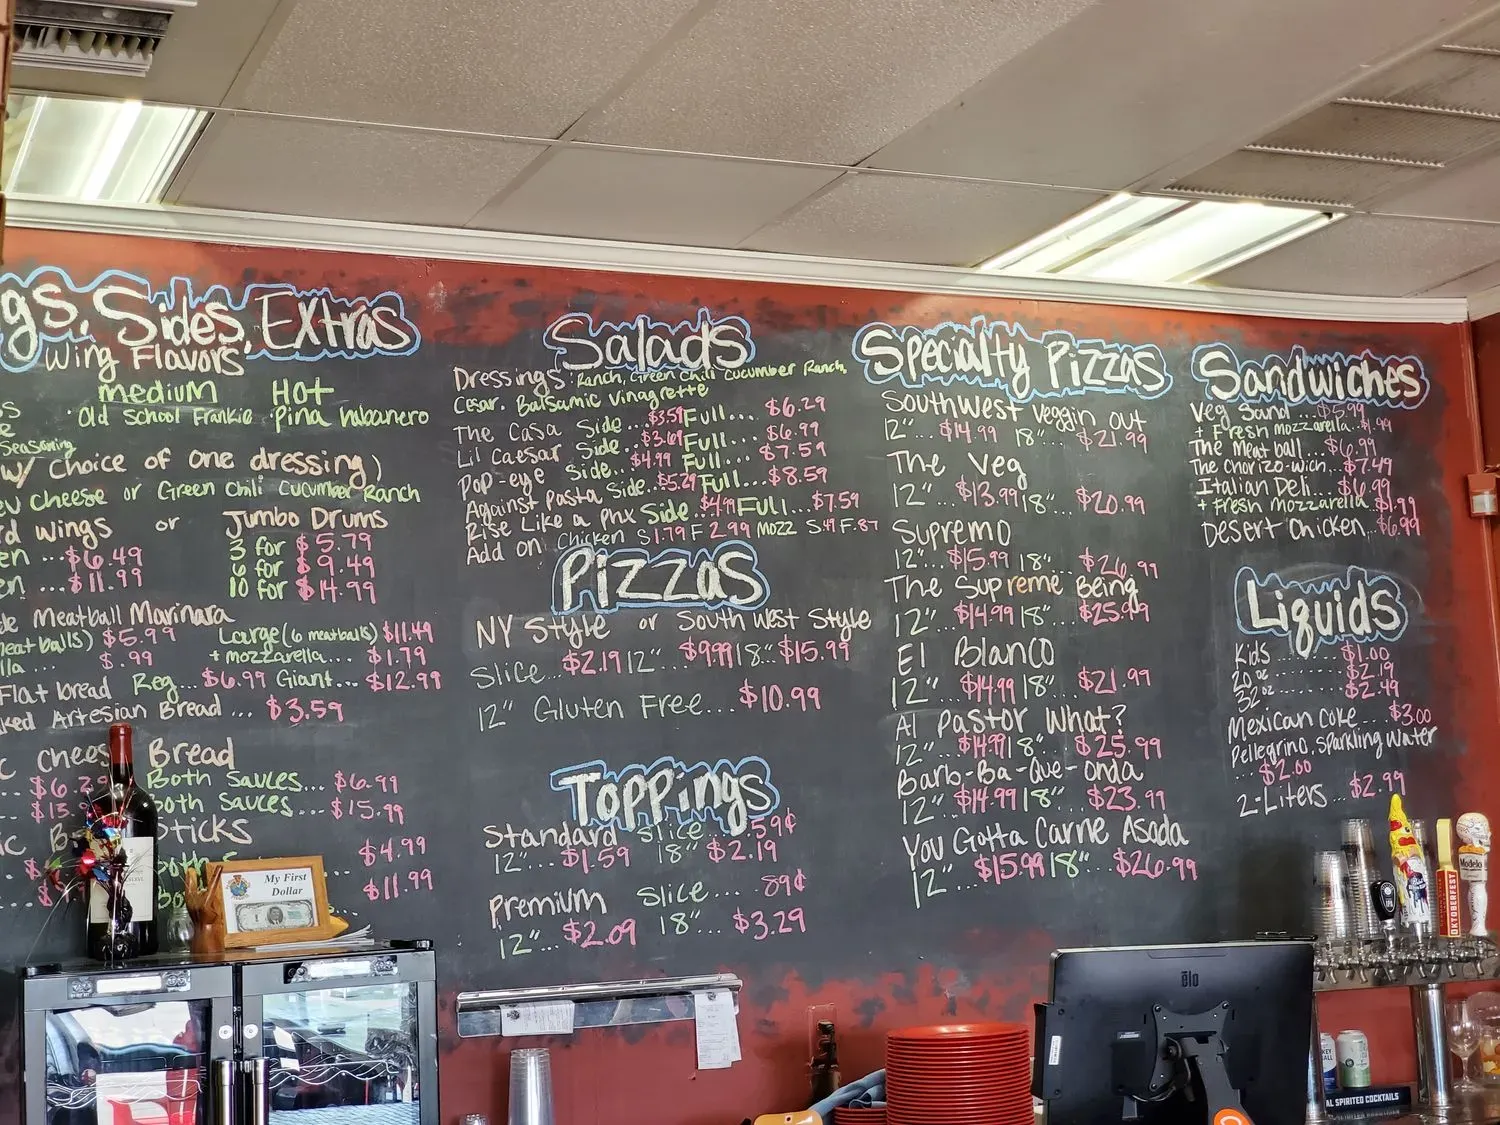 gs, Sides, Extras
Wing Flavors
medium Hot
Old School Frankie Pina habanero
Seasoning
w/ Choice of one dressing)
Cheese or Green Chili Cucumber Ranch
wings or Jumbo Drums
... $6.49 3 for $5.79
... $11.99 6 for $9.49
10 for $14.99
Meatball Marinara
meatballs) $5.99 Large (6 meatballs) $11.49
... $.99 + mozzarella... $1.79
Flat bread Reg... $6.99 Giant... $12.99
Artesian Bread ... $3.59
Chees Bread
Both Sauces... $6.99
Both Sauces... $15.99
Sticks
$4.99
$11.99
My First
Dollar
Salads
Dressings: Ranch, Green Chili Cucumber Ranch,
Cesar, Balsamic Vinagrette
The Casa Side...$3.59 Full... $6.29
Lil Caesar Side...$3.69 Full... $6.99
Pop-eye Side...$4.99 Full... $7.59
Against Pasta Side...$5.29 Full... $8.59
Rise Like a Phx Side..$4.99 Full... $7.59
Add on: Chicken S 1.79 F 2.99 Mozz S.49 F.87
Pizzas
NY Style or South West Style
Slice...$2.19 12"...$9.99 18"...$15.99
12" Gluten Free... $10.99
Toppings
Standard Slice... .59¢
12"... $1.59 18" $2.19
Premium Slice... 89¢
12"... $2.09 18".. $3.29
Specialty Pizzas
Southwest Veggin out
12"... $14.99 18"... $21.99
The Veg
12"... $13.99 18"... $20.99
Supremo
12"... $15.99 18"... $26.99
The Supreme Being
12"... $14.99 18"... $25.99
El Blanco
12"... $14.99 18"... $21.99
Al Pastor What?
12"... $14.99 18"... $25.99
Barb-Ba-Que-onda
12"... $14.99 18"... $23.99
You Gotta Carne Asada
12"... $15.99 18"... $26.99
Sandwiches
Veg Sand ... $5.99
+ Fresh Mozzarella..$1.99
The Meat ball ... $6.99
The Chorizo-wich... $7.49
Italian Deli... $6.99
+ Fresh mozzarella.$1.99
Desert Chicken...$6.99
Liquids
Kids ........ $1.00
20 oz ....... $2.19
32 oz ....... $2.49
Mexican Coke... $3.00
Pellegrino, Sparkling Water
... $2.00
2-Liters... $2.99
elo
Modelo
OKTOBERFEST
IPA
AL SPIRITED COCKTAILS